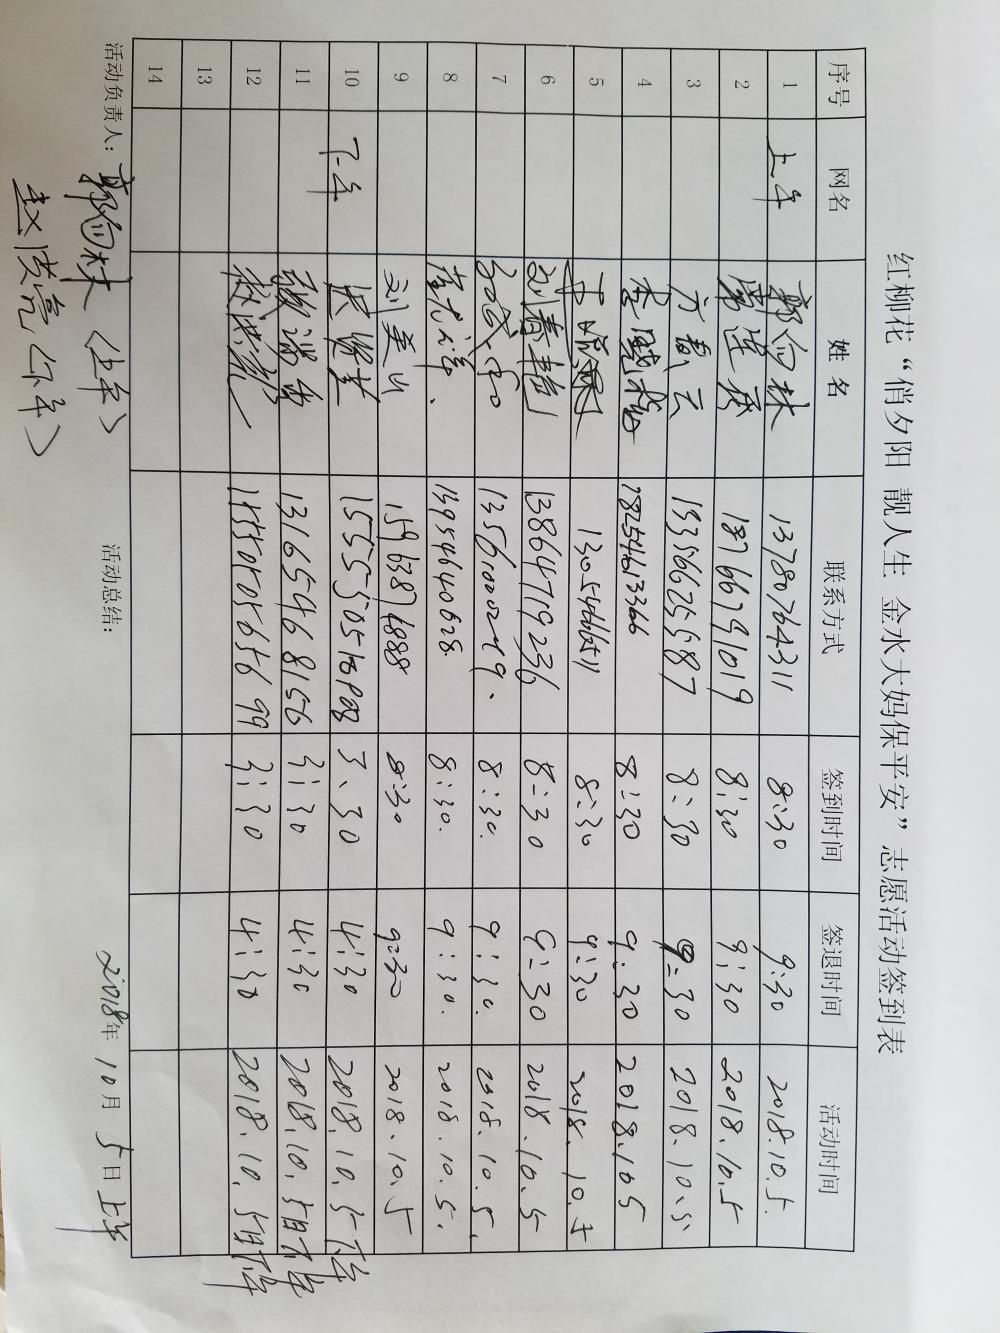 红柳花“俏夕阳 靓人生 金水大妈保平安”志愿活动签到表
序号 网名 姓名 联系方式 签到时间 签退时间 活动时间
1 上午 郭向林 13780764311 8:30 9:30 2018.10.5.
2 18766791019 8:30 9:30 2018.10.5
3 方嘉云 13356625587 8:30 9:30 2018.10.5
4 18254613366 8:30 9:30 2018.10.5
5 13054616511 8:30 9:30 2018.10.5
6 刘春艳 13864719236 8:30 9:30 2018.10.5
7 8:30. 9:30. 2018.10.5.
8 13954640628 8:30. 9:30. 2018.10.5.
9 刘美山 15963874888 8:30 9:30 2018.10.5
10 下午 3、30 4:30 2018.10.5下午
11 13165468156 3:30 4:30 2018.10.5日下午
12 3:30 4:30 2018.10.5日下午
13
14
活动负责人：郭向林〈上午〉 活动总结： 2018年10月5日上午
赵洪亮〈下午〉